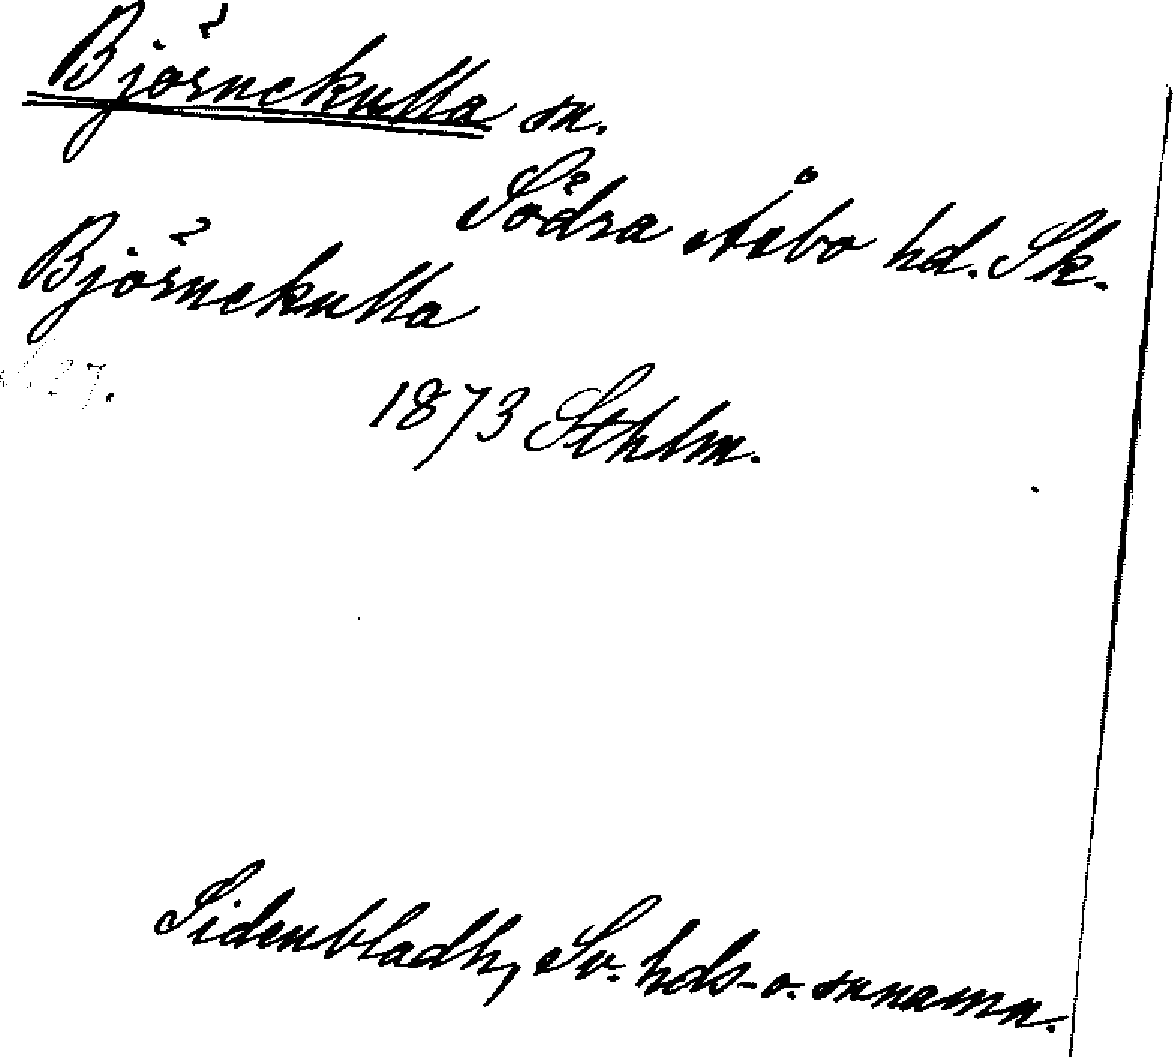 Björnekulla sn.
Södra Åsbo hd. Sk.
Björnekulla
1873 Sthlm.
Sidenbladh, Sv. hds- o. snnamn.